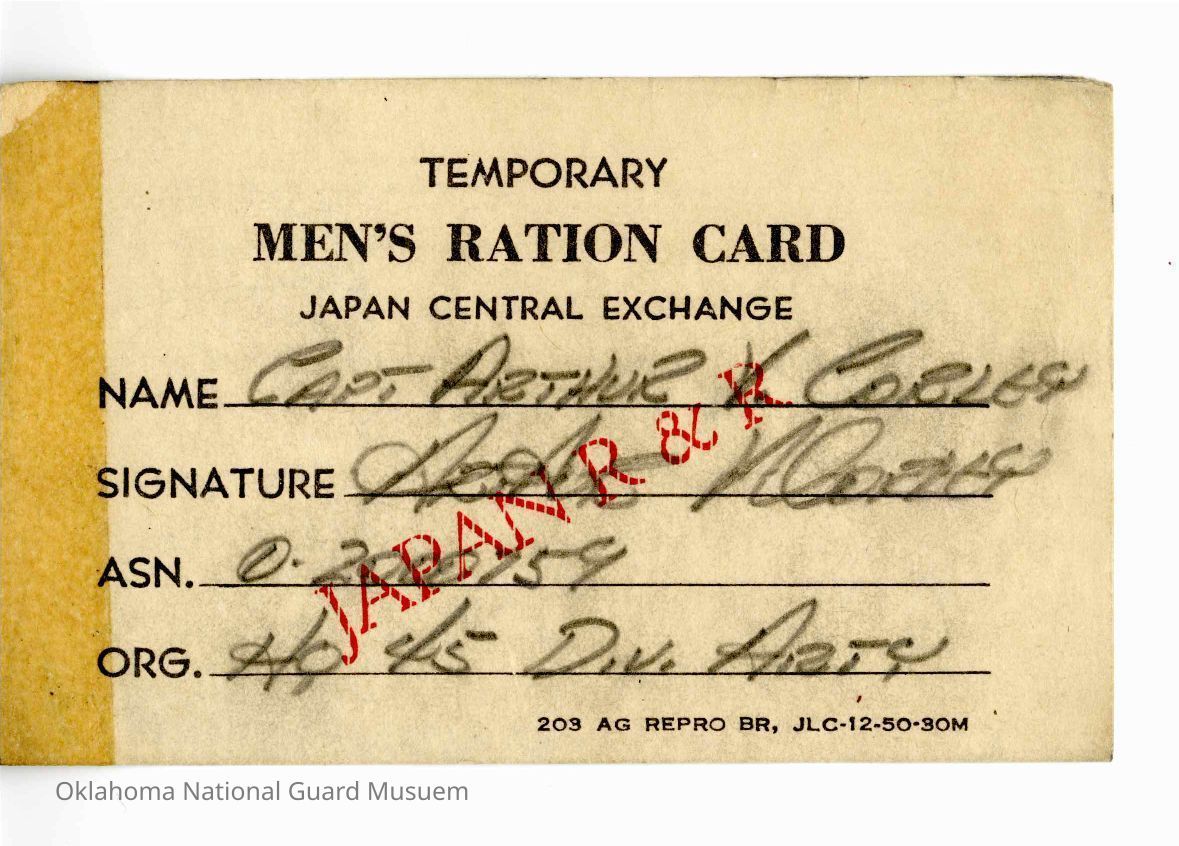 TEMPORARY
MEN'S RATION CARD
JAPAN CENTRAL EXCHANGE
NAME CAPT ARTHUR V. CORLEY
SIGNATURE Arthur V. Corley
JAPAN R & R
ASN.
ORG. HQ 45 DIV. ARTY
203 AG REPRO BR, JLC-12-50-30M
Oklahoma National Guard Musuem